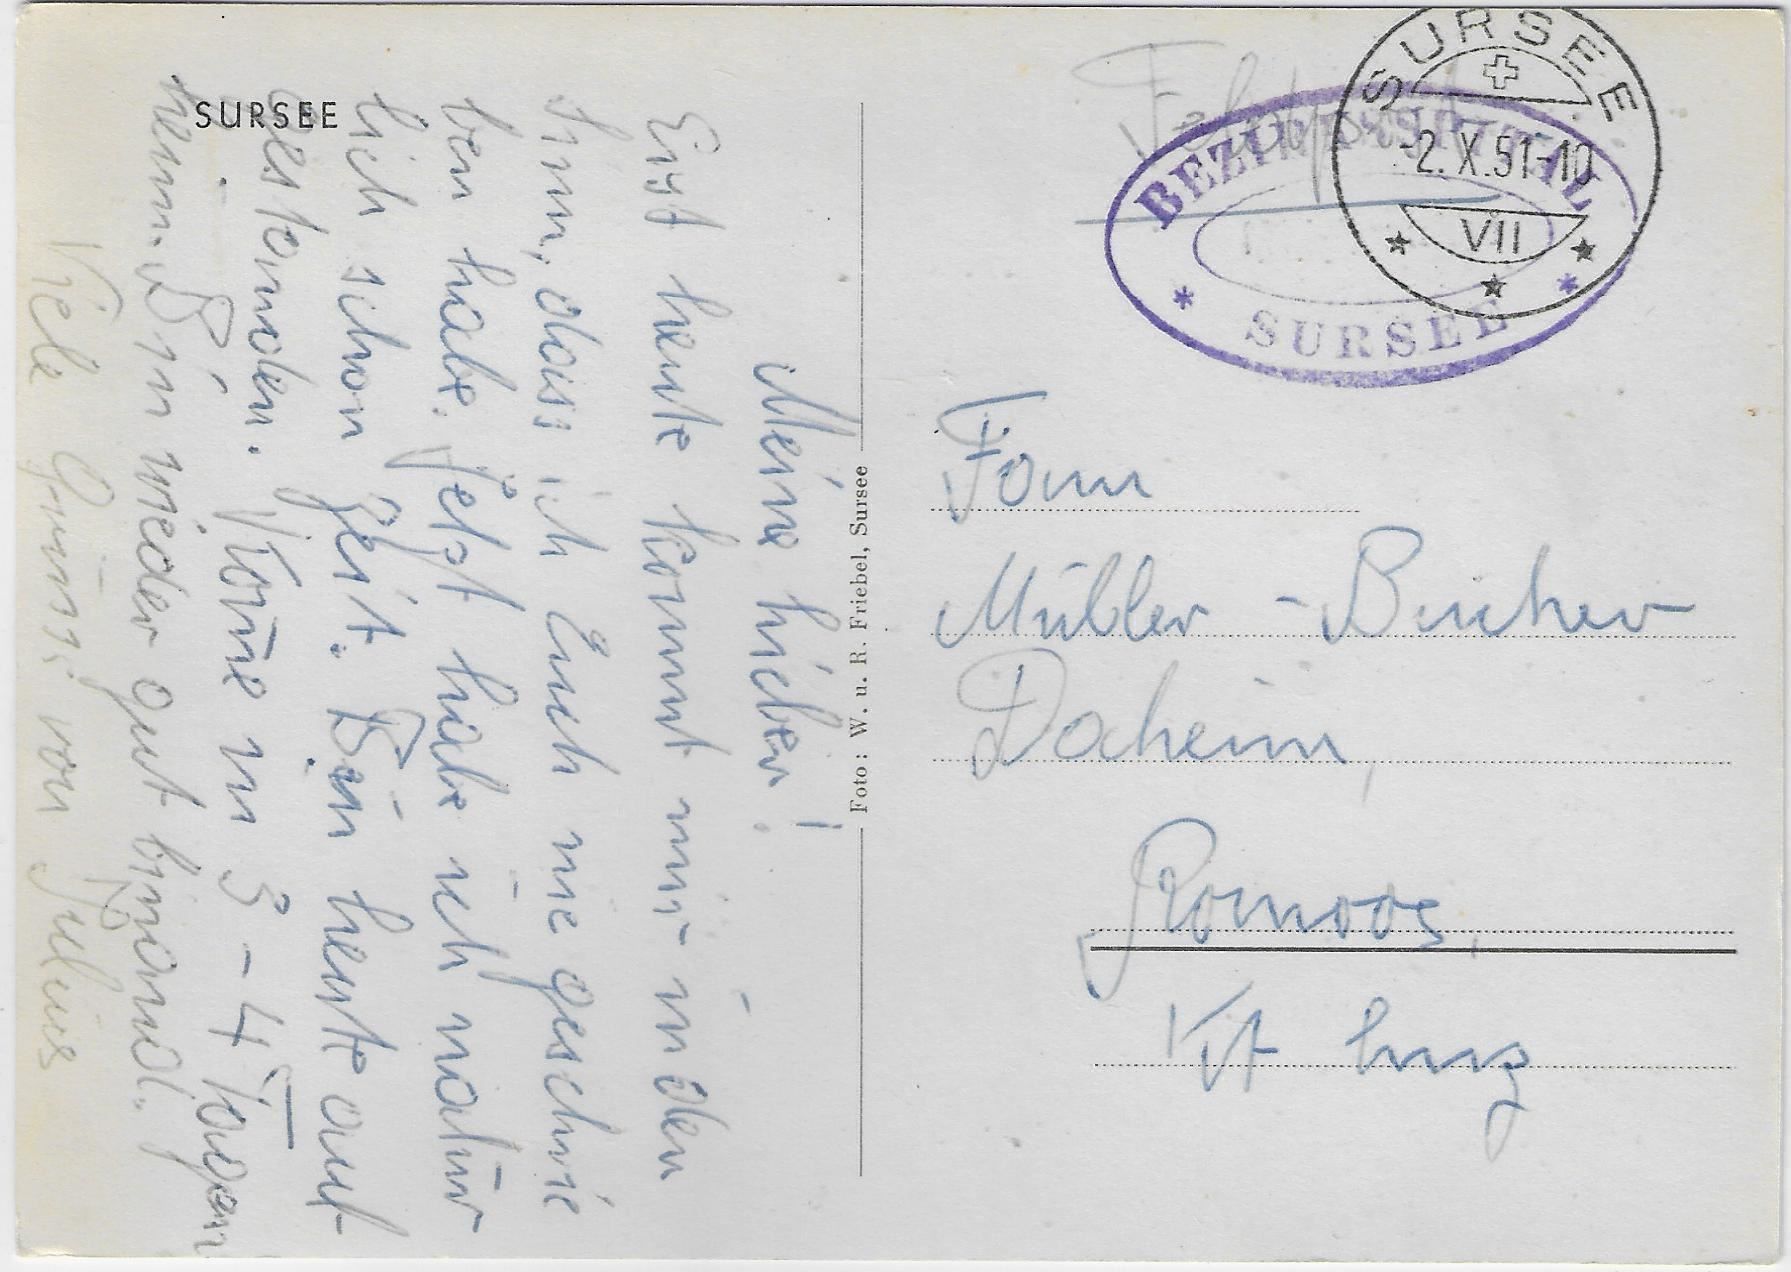 SURSEE
Meine lieben!
Erst heute kommt mir in den
Sinn, dass ich Euch nie geschrie
ben habe. Jetzt habe ich natür
lich schon Zeit. Bin heute auf-
gestanden. Könne in 3-4 Tagen
heim. Bin wieder gut bjnand.
Viele Grüsse von Julius
Foto: W. u. R. Friebel, Sursee
Feldpost
BEZIRKSSPITAL
SURSEE
SURSEE
-2.X.51-10
VII
Fam
Müller-Bucher
Daheim,
Romoos,
Kt Luz